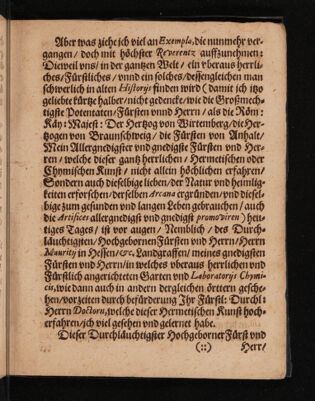 Aber was ziehe ich viel an Exempla, die nunmehr ver-
gangen/ doch mit höchster Reverentz auffzunehmen:
Dieweil vns/ in der gantzen Welt/ ein vberaus herrli-
ches/ Fürstliches/ vnnd ein solches/ dessengleichen man
schwerlich in alten Historijs finden wird (damit ich itzo
geliebte kürtze halber/ nicht gedencke/ wie die Großmech-
tigste Potentaten/ Fürsten vnnd Herrn/ als die Röm:
Käy: Majest: Der Hertzog von Wirttemberg/ die Her-
zogen von Braunschweig/ die Fürsten von Anhalt/
Mein Allergnedigster vnd gnedigste Fürsten vnd Her-
ren/ welche dieser gantz herrlichen/ Hermetischen oder
Chymischen Kunst/ nicht allein höchlichen erfahren/
Sondern auch dieselbige lieben/ der Natur vnd heimlig-
keiten erforschen/ derselben Arcana ergründen/ vnd diesel-
bige zum gesunden vnd langen Leben gebrauchen/ auch
die Artifices allergnedigst vnd gnedigst promoviren) heu-
tiges Tages/ ist vor augen/ Nemblich/ des Durch-
läuchtigsten/ Hochgebornen Fürsten vnd Herrn/ Herrn
Mauritij in Hessen/ &c. Landgraffen/ meines gnedigsten
Fürsten vnd Herrn/ in welches vberaus herrlichen vnd
Fürstlich angerichteten Garten vnd Laboratorijs Chymi-
cis, wie dann auch in andern dergleichen örttern gesche-
hen/ vorzeiten durch befürderung Ihr Fürstl: Durchl:
Herrn Doctorn, welche dieser Hermetischen Kunst hoch-
erfahren/ ich viel gesehen vnd gelernet habe.
Dieser Durchläuchtigster Hochgeborner Fürst vnd
(::) Herr/